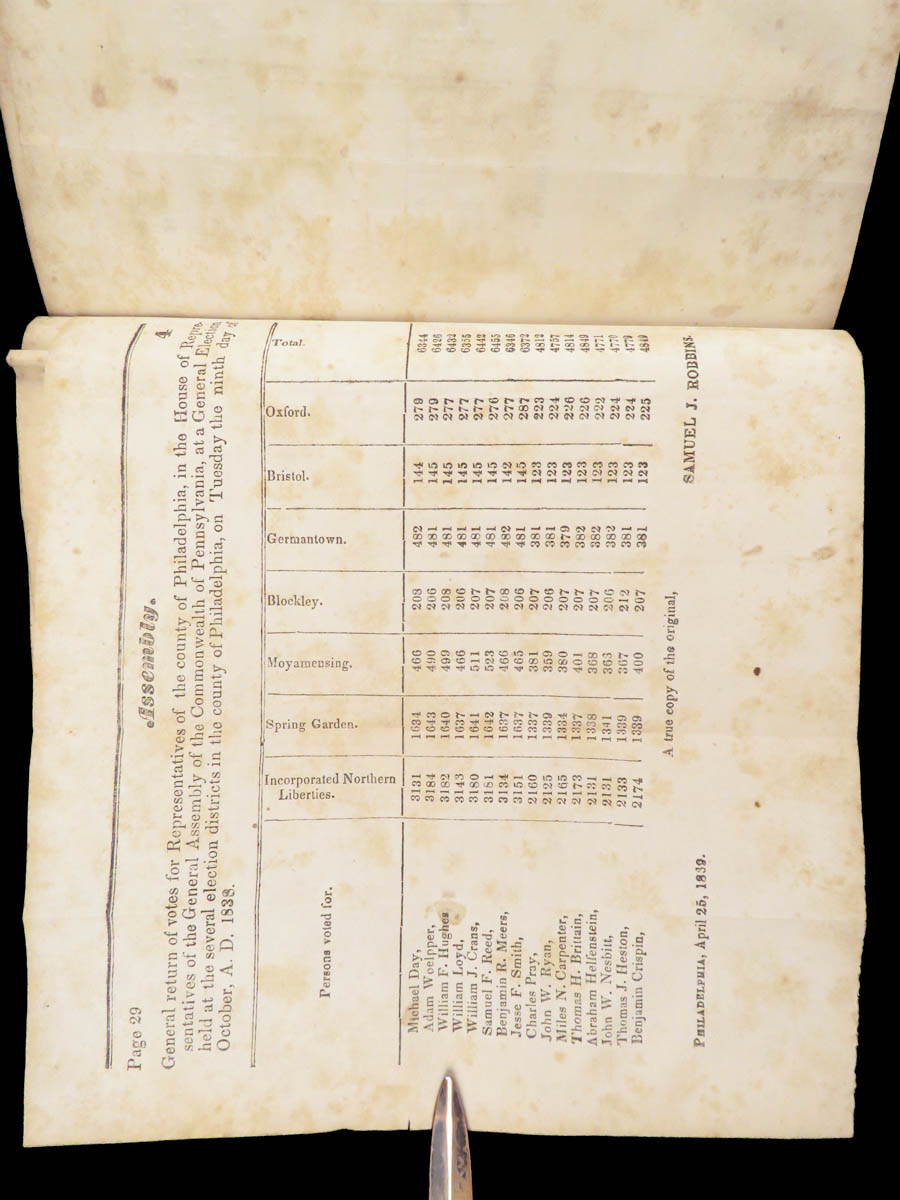 Page 29
Assembly.
4
General return of votes for Representatives of the county of Philadelphia, in the House of Repre-
sentatives of the General Assembly of the Commonwealth of Pennsylvania, at a General Election
held at the several election districts in the county of Philadelphia, on Tuesday the ninth day of
October, A. D. 1838.
Persons voted for. Incorporated Northern Liberties. Spring Garden. Moyamensing. Blockley. Germantown. Bristol. Oxford. Total.
Michael Day, 3131 1634 466 208 482 144 279 6344
Adam Woelpper, 3184 1643 490 206 481 145 279 6426
William F. Hughes 3182 1640 499 208 481 145 277 6432
William Loyd, 3143 1637 466 206 481 145 277 6355
William J. Crans, 3180 1641 511 207 481 145 277 6442
Samuel F. Reed, 3181 1642 523 207 481 145 276 6455
Benjamin R. Meers, 3134 1637 466 208 482 142 277 6346
Jesse F. Smith, 3151 1637 465 206 481 145 287 6372
Charles Pray, 2160 1337 381 207 381 123 223 4812
John W. Ryan, 2125 1339 359 206 381 123 224 4757
Miles N. Carpenter, 2165 1334 380 207 379 123 226 4814
Thomas H. Brittain, 2173 1337 401 207 382 123 226 4849
Abraham Helfenstein, 2131 1338 368 207 382 123 222 4771
John W. Nesbitt, 2131 1341 363 206 382 123 224 4770
Thomas J. Heston, 2133 1339 367 212 381 123 224 4779
Benjamin Crispin, 2174 1339 400 207 381 123 225 4849
A true copy of the original,
PHILADELPHIA, April 25, 1839.
SAMUEL J. ROBBINS.